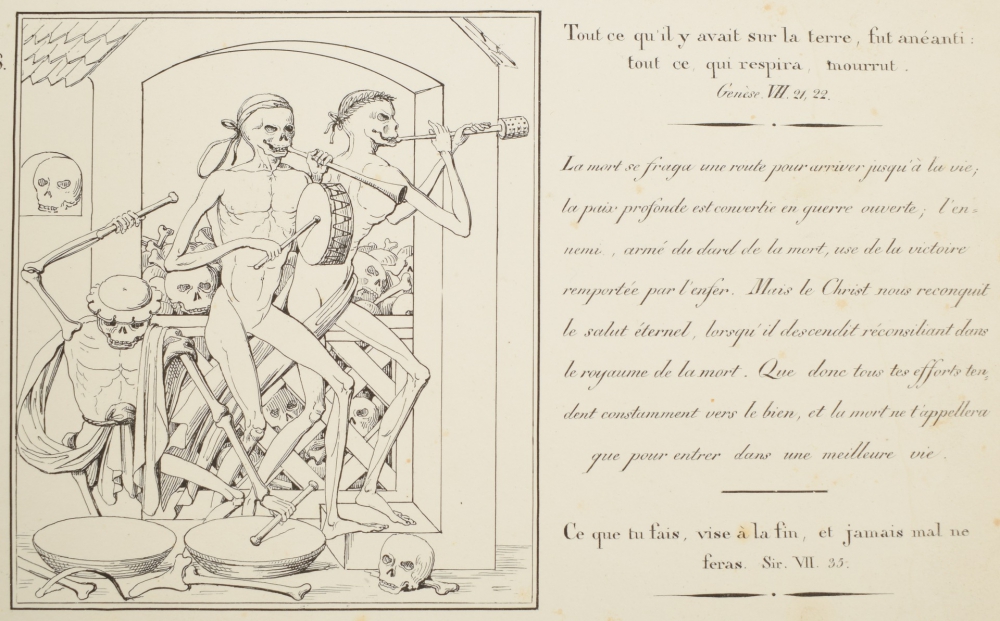 Tout ce qu'il y avait sur la terre, fut anéanti:
tout ce qui respira, mourrut.
Genèse. VII. 21, 22.
La mort se fraga une route pour arriver jusqu'à la vie;
la paix profonde est convertie en guerre ouverte; l'en=
nemi, armé du dard de la mort, use de la victoire
remportée par l'enfer. Mais le Christ nous reconquit
le salut éternel, lorsqu'il descendit réconsiliant dans
le royaume de la mort. Que donc tous tes efforts ten=
dent constamment vers le bien, et la mort ne t'appellera
que pour entrer dans une meilleure vie.
Ce que tu fais, vise à la fin, et jamais mal ne
feras. Sir. VII. 35.